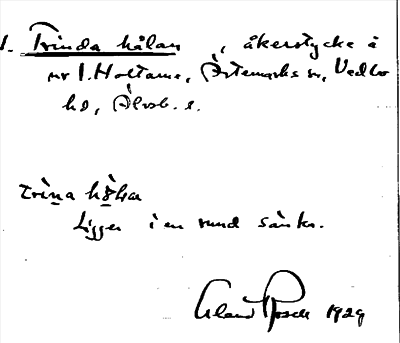 1. Trinda hålan, åkerstycke å
nr 1. Holtarne, Ärtemarks sn, Vedbo
hd, Älvsb. l.
trìna hò̱la
Ligger i en rund sänka.
Rosell 1929